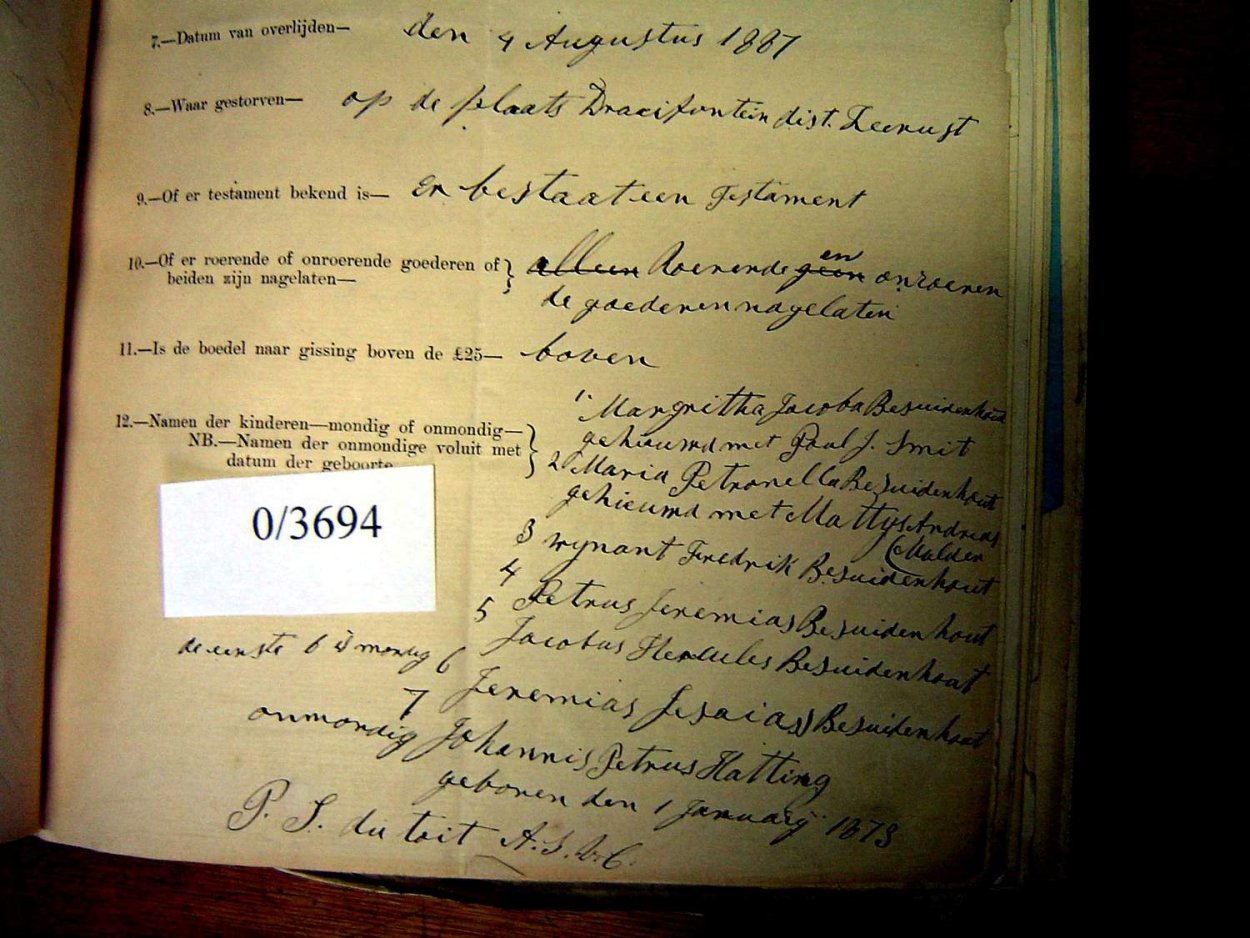 7.—Datum van overlijden— den 4 Augustus 1887
8.—Waar gestorven— op de plaats Draaifontein dist. Zeerust
9.—Of er testament bekend is— Er bestaat een Testament
10.—Of er roerende of onroerende goederen of alleen Roerende geen en onroeren
beiden zijn nagelaten— de goederen nagelaten
11.—Is de boedel naar gissing boven de £25— boven
12.—Namen der kinderen—mondig of onmondig—
NB.—Namen der onmondige voluit met
datum der geboorte
1 Margritha Jacoba Besuidenhout
gehieuwd met Paul J. Smit
2 Maria Petronella Besuidenhout
gehieuwd met Mattys Andreas
Mulder
3 wynant Fredrik Besuidenhout
4 Petrus Jeremias Besuidenhout
5 Jacobus Hercules Besuidenhout
de eerste 6 is mondig 6 Jeremias Jesaias Besuidenhout
onmondig 7 Johannis Petrus Hatting
geboren den 1 January 1873
P. S. du toit
0/3694